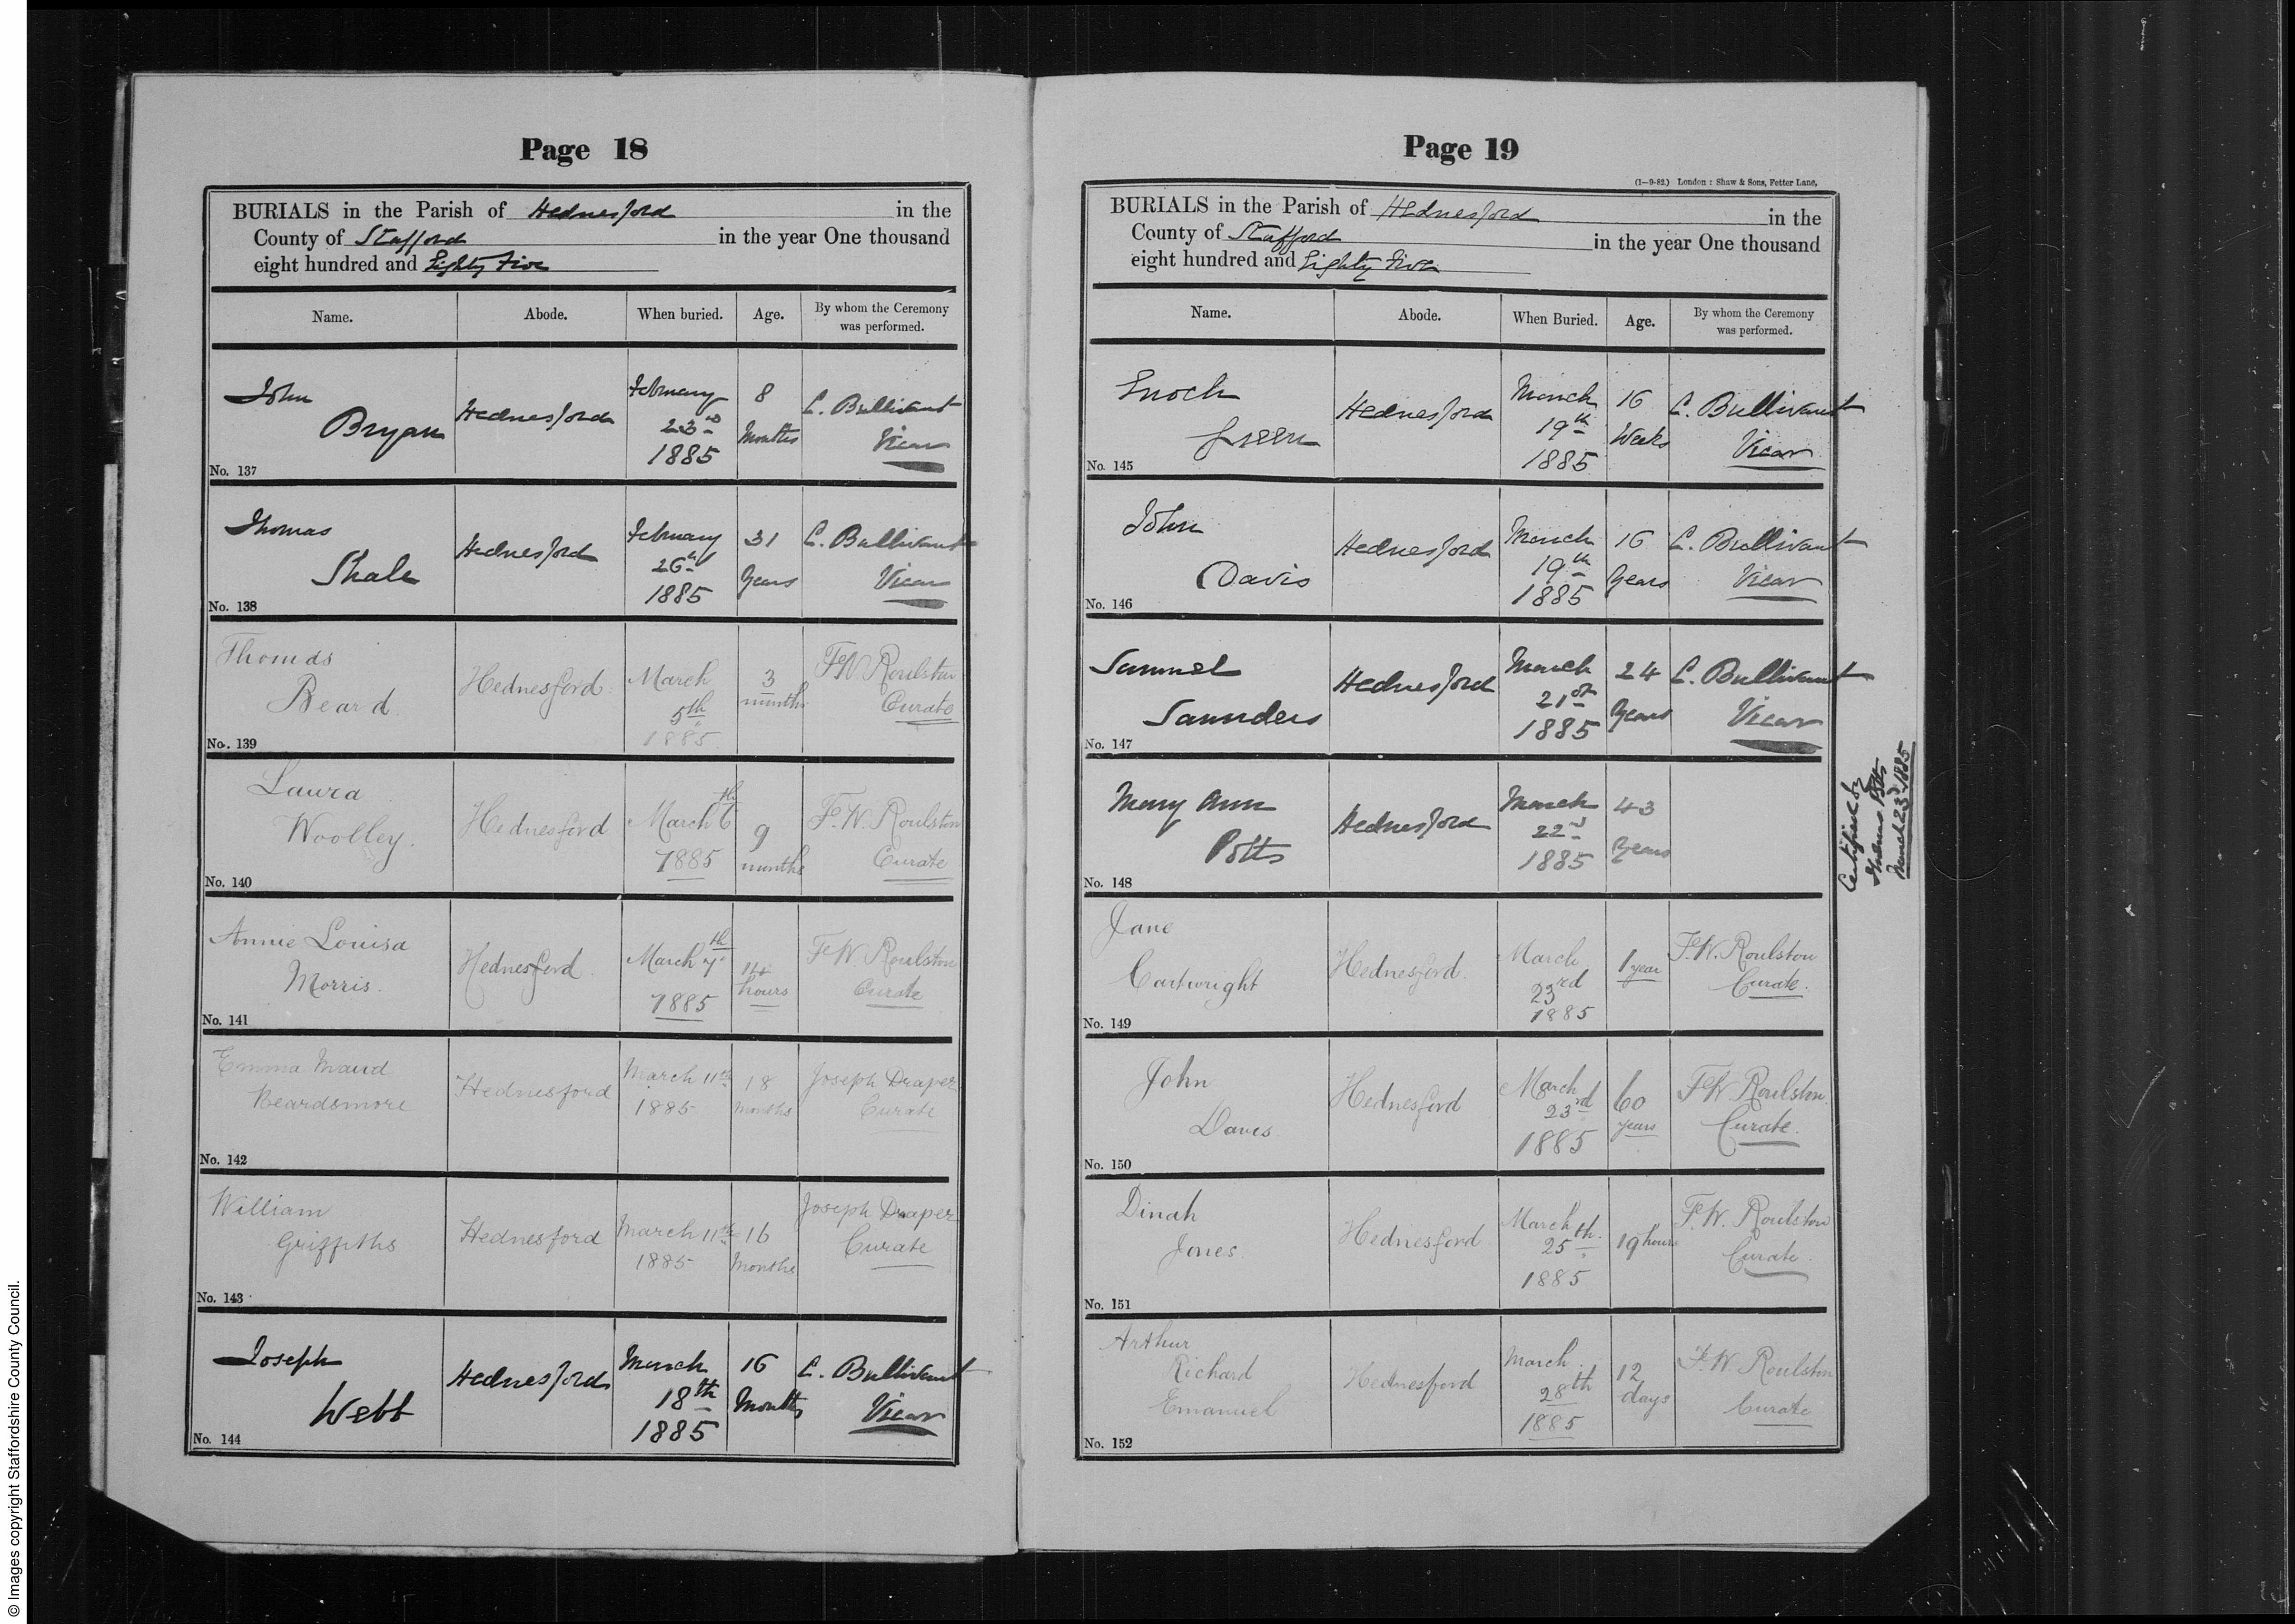 Page 18
BURIALS in the Parish of Hednesford in the
County of Stafford in the year One thousand
eight hundred and Eighty Five
Name. Abode. When buried. Age. By whom the Ceremony was performed.
John
Bryan
Hednesford
February
23rd
1885
8
Months
C. Bullivant
Vicar
No. 137
Thomas
Shale
Hednesford
February
26th
1885
31
Years
C. Bullivant
Vicar
No. 138
Thomas
Beard.
Hednesford
March
5th
1885.
3
months
F.W. Roulston
Curate
No. 139
Laura
Woolley.
Hednesford
March 6th
1885
9
months
F. W. Roulston
Curate
No. 140
Annie Louisa
Morris.
Hednesford.
March 7th
1885
hours
F. W. Roulston
Curate
No. 141
Emma Maud
Beardsmore
Hednesford
March 11th
1885
18
Months
Joseph Draper
Curate
No. 142
William
Griffiths
Hednesford
March 11th
1885
16
Months
Joseph Draper
Curate
No. 143
Joseph
Webb
Hednesford
March
18th
1885
16
Months
C. Bullivant
Vicar
No. 144
Page 19
(1—9-82.) London : Shaw & Sons, Fetter Lane,
BURIALS in the Parish of Hednesford in the
County of Stafford in the year One thousand
eight hundred and Eighty Five
Name. Abode. When Buried. Age. By whom the Ceremony was performed.
Enoch
Green
Hednesford
March
19th
1885
16
Weeks
C. Bullivant
Vicar
No. 145
John
Davis
Hednesford
March
19th
1885
16
Years
C. Bullivant
Vicar
No. 146
Samuel
Saunders
Hednesford
March
21st
1885
24
Years
C. Bullivant
Vicar
No. 147
Mary Ann
Potts
Hednesford
March
22nd
1885
43
Years
No. 148
Certified by
Thomas Potts
March 23rd 1885
Jane
Cartwright
Hednesford.
March
23rd
1885
1 year
F. W. Roulston
Curate.
No. 149
John
Davis
Hednesford
March
23rd
1885
60
years
F. W. Roulston.
Curate.
No. 150
Dinah
Jones.
Hednesford
March
25th
1885
19 hours
F. W. Roulston
Curate.
No. 151
Arthur
Richard
Emanuel
Hednesford
March
28th
1885
12
days
F. W. Roulston
Curate
No. 152
© Images copyright Staffordshire County Council.